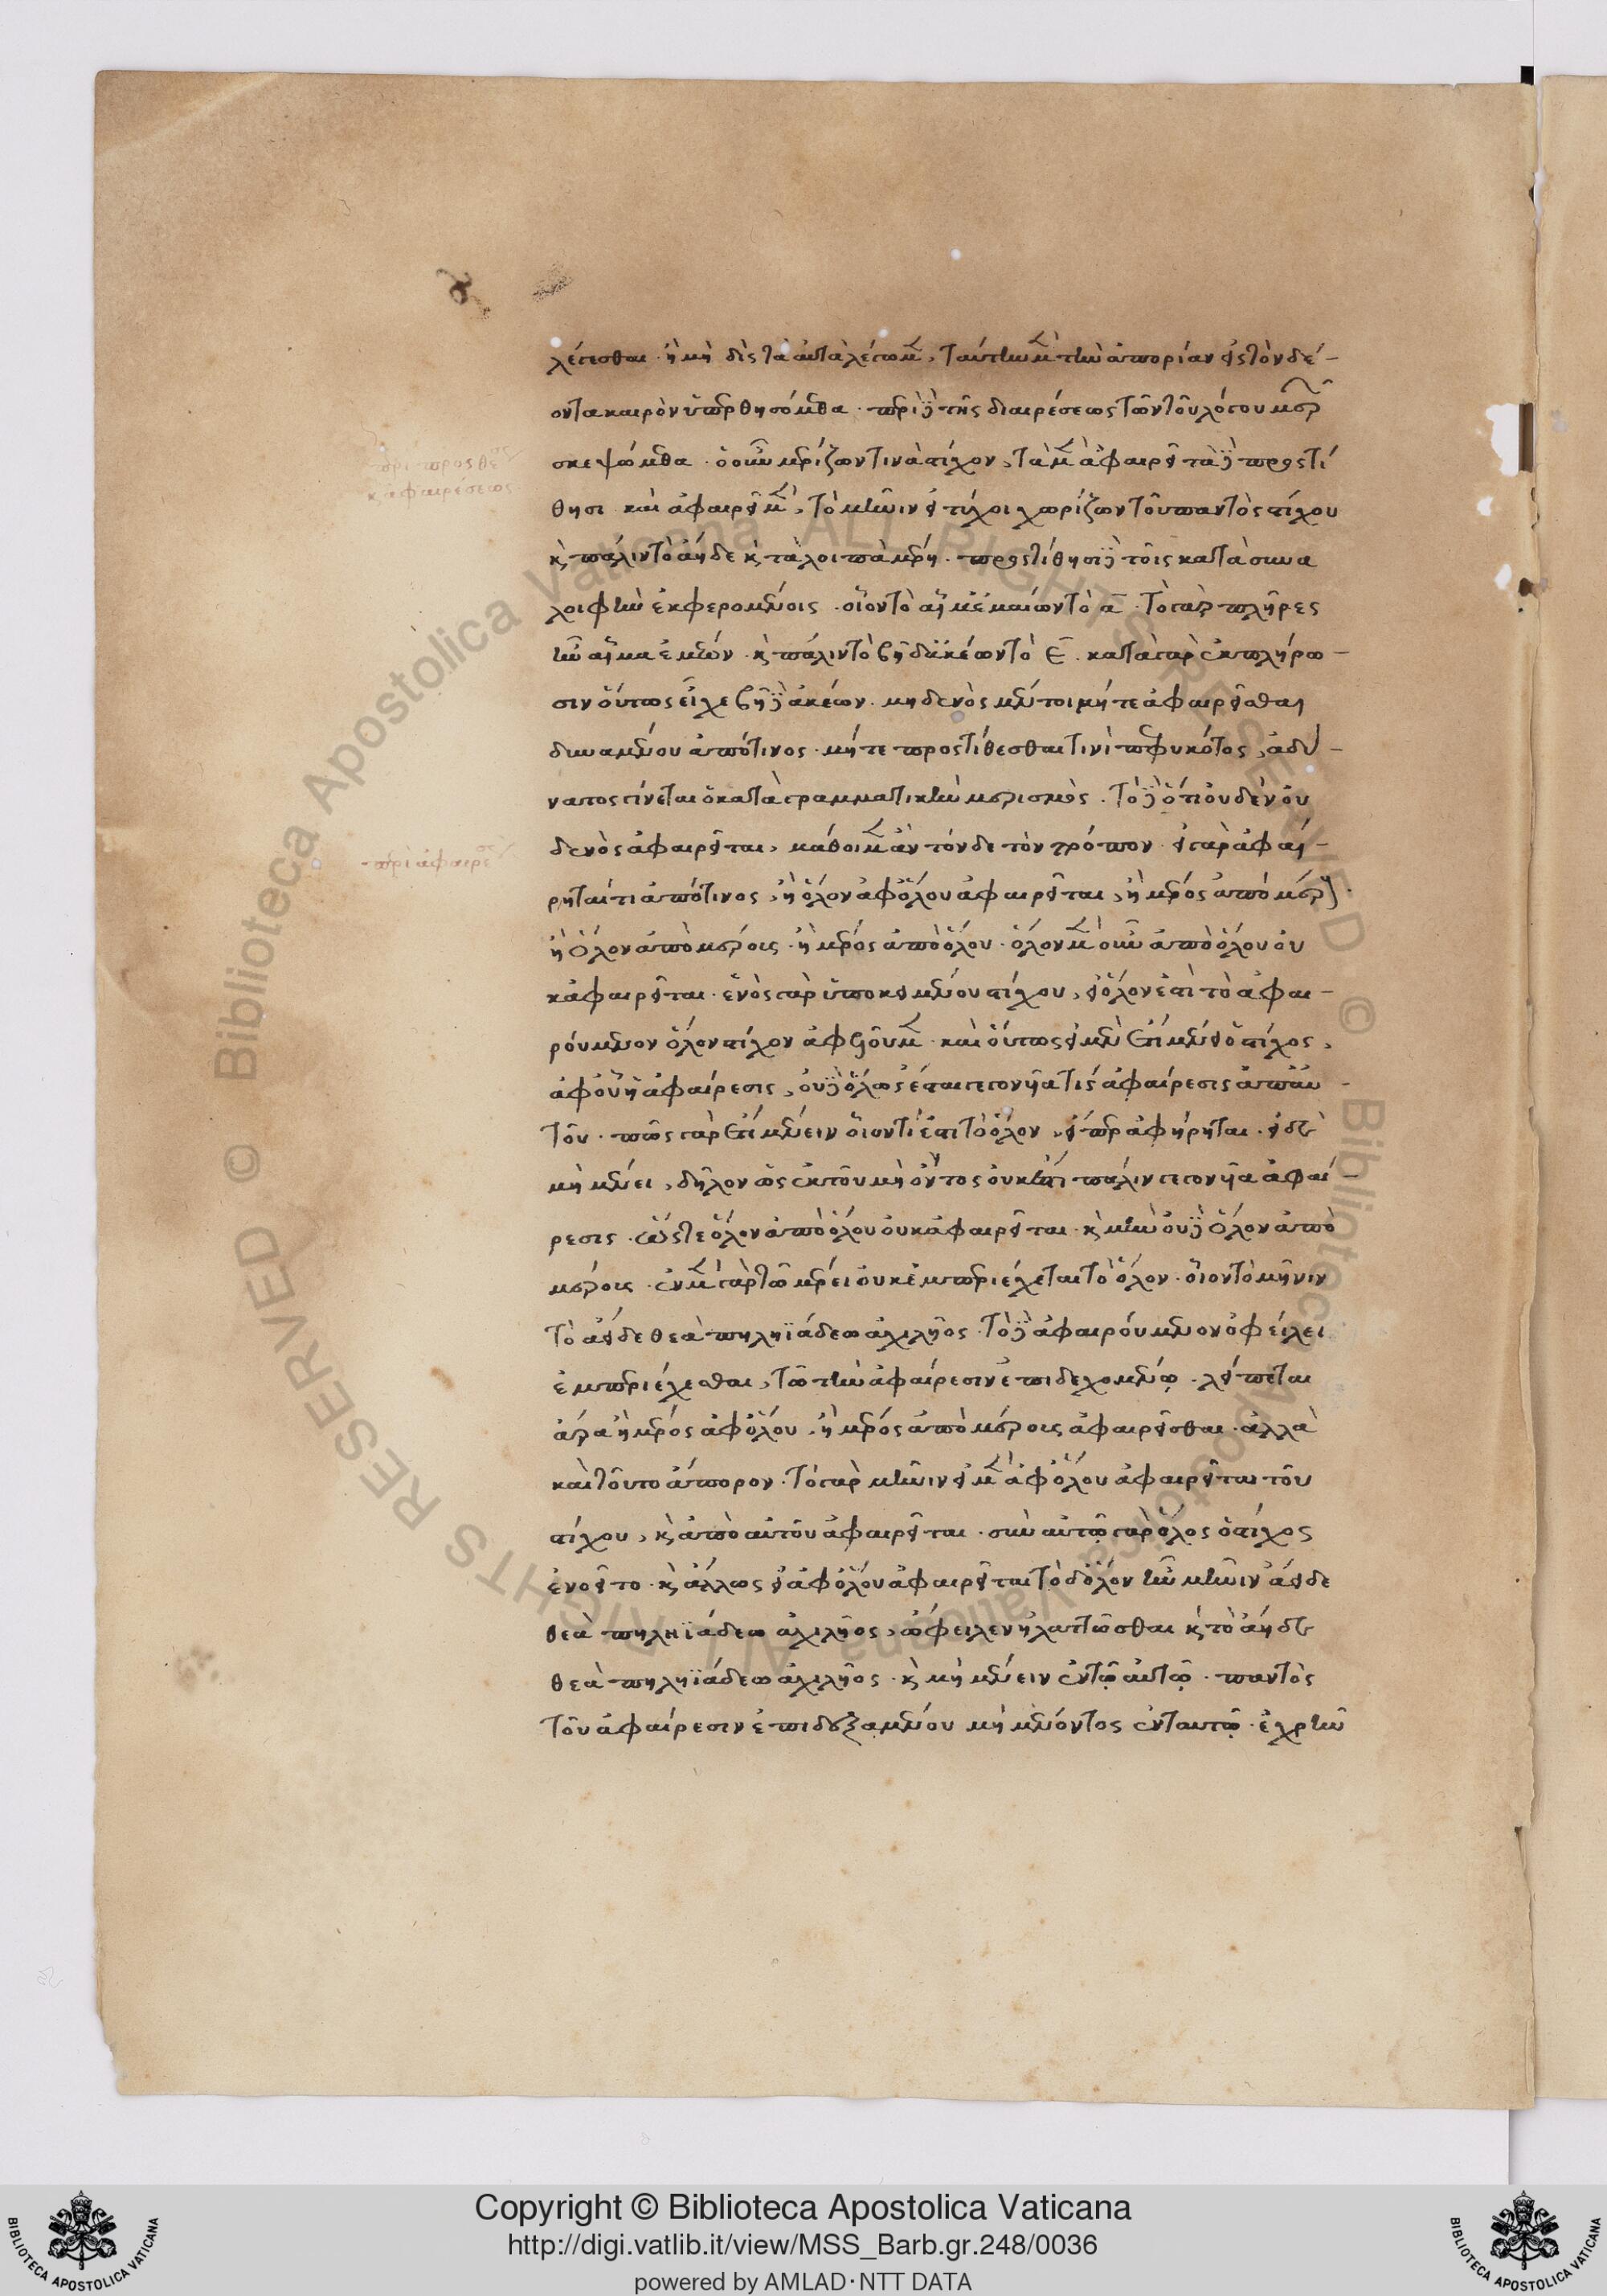 λέγεσθαι. ἢ μὴ δὶς τὰ αὐτὰ λέγωμεν, ταύτην μὲν τὴν ἀπορίαν εἰς τὸν δέ-
οντα καιρὸν ὑπερθησόμεθα. περὶ δὲ τῆς διαιρέσεως τῶν τοῦ λόγου μερῶν
σκεψώμεθα. ὁ οὖν μερίζων τινὰ στίχον, τὰ μὲν ἀφαιρεῖ τὰ δὲ προστί
θησι. καὶ ἀφαιρεῖ μὲν, τὸ μῆνιν εἰ τύχοι χωρίζων τοῦ παντὸς στίχου
κὶ πάλιν τὸ ἄηδε κὶ τὰ λοιπὰ μέρη. προστίθησι δὲ τοῖς κατὰ συνα
λοιφὴν ἐκφερομένοις. οἷον τὸ αἷμ' ἐμέων τὸ α. τὸ γὰρ πλῆρες
ἦν αἷμα ἐμέων. κὶ πάλιν τὸ βῆ δ' ἀκέων τὸ ε. κατὰ γὰρ ἐκπλήρω-
σιν οὕτως εἶχε βῆ δὲ ἀκέων. μηδενὸς μέντοι μήτε ἀφαιρεῖσθαι
δυναμένου ἀπό τινος. μήτε προστίθεσθαί τινι πεφυκότος, ἀδύ-
νατος γίνεται ὁ κατὰ γραμματικὴν μερισμός. τὸ δὲ ὅτι οὐδὲν οὐ
δενὸς ἀφαιρεῖται, μάθοιμεν ἂν τόνδε τὸν τρόπον. εἰ γὰρ ἀφαι-
ρῆταί τι ἀπό τινος, ἢ ὅλον ἀφ' ὅλου ἀφαιρεῖται, ἢ μέρος ἀπὸ μέρους.
ἢ ὅλον ἀπὸ μέρους. ἢ μέρος ἀπὸ ὅλου. ὅλον μὲν οὖν ἀπὸ ὅλου οὐ
κ ἀφαιρεῖται. ἑνὸς γὰρ ὑποκειμένου στίχου, εἰ ὅλον ἐστὶ τὸ ἀφαι-
ρούμενον ὅλον στίχον ἀφελοῦμεν. καὶ οὕτως εἰ μὲν ἔτι μένει ὁ στίχος,
ἀφ' οὗ ἡ ἀφαίρεσις, οὐδὲ ὅλως ἔσται γεγονῦιά τις ἀφαίρεσις ἀπ' αὐ-
τοῦ. πῶς γὰρ ἔτι μένειν οἷόν τι ἐστὶ τὸ ὅλον, εἴπερ ἀφῄρηται. εἰ δὲ
μὴ μένει, δῆλον ὡς ἐκ τοῦ μὴ ὄντος οὐκ ἔστι πάλιν γεγονῦια ἀφαί-
ρεσις. ὥστε ὅλον ἀπὸ ὅλου οὐκ ἀφαιρεῖται. κὶ μὴν οὐδὲ ὅλον ἀπὸ
μέρους. ἐν μὲν γὰρ τῷ μέρει οὐκ ἐμπεριέχεται τὸ ὅλον. οἷον τὸ μῆνιν
τὸ ἄειδε θεὰ πηληϊάδεω ἀχιλῆος. τὸ δὲ ἀφαιρούμενον ὀφείλει
ἐμπεριέχεσθαι, τῷ τὴν ἀφαίρεσιν ἐπιδεχομένῳ. λείπεται
ἄρα ἢ μέρος ἀφ' ὅλου, ἢ μέρος ἀπὸ μέρους ἀφαιρεῖσθαι. ἀλλὰ
καὶ τοῦτο ἄπορον. τὸ γὰρ μῆνιν εἰ μὲν ἀφ' ὅλου ἀφαιρεῖται τοῦ
στίχου, κὶ ἀπὸ αὐτοῦ ἀφαιρεῖται. σὺν αὐτῷ γὰρ ὅλος ὁ στίχος
ἐνοεῖτο. κὶ ἄλλως εἰ ἀφ' ὅλου ἀφαιρεῖται τὸ δ' ὅλον ἦν μῆνιν ἄειδε
θεὰ πηληϊάδεω ἀχιλῆος, ὤφειλεν ἠλαττῶσθαι κὶ τὸ ἄηδε
θεὰ πηληϊάδεω ἀχιλῆος. κὶ μὴ μένειν ἐν τῷ αὐτῷ. παντὸς
τοῦ ἀφαίρεσιν ἐπιδεξαμένου μὴ μένοντος ἐν ταυτῷ. ἐχρῆν
περὶ προσθέ
κὶ ἀφαιρέσεως
περὶ ἀφαιρέ
Copyright © Biblioteca Apostolica Vaticana
http://digi.vatlib.it/view/MSS_Barb.gr.248/0036
powered by AMLAD·NTT DATA
BIBLIOTECA APOSTOLICA VATICANA
BIBLIOTECA APOSTOLICA VATICANA
© Biblioteca Apostolica Vaticana ALL RIGHTS RESERVED © Biblioteca Apostolica Vaticana ALL RIGHTS RESERVED